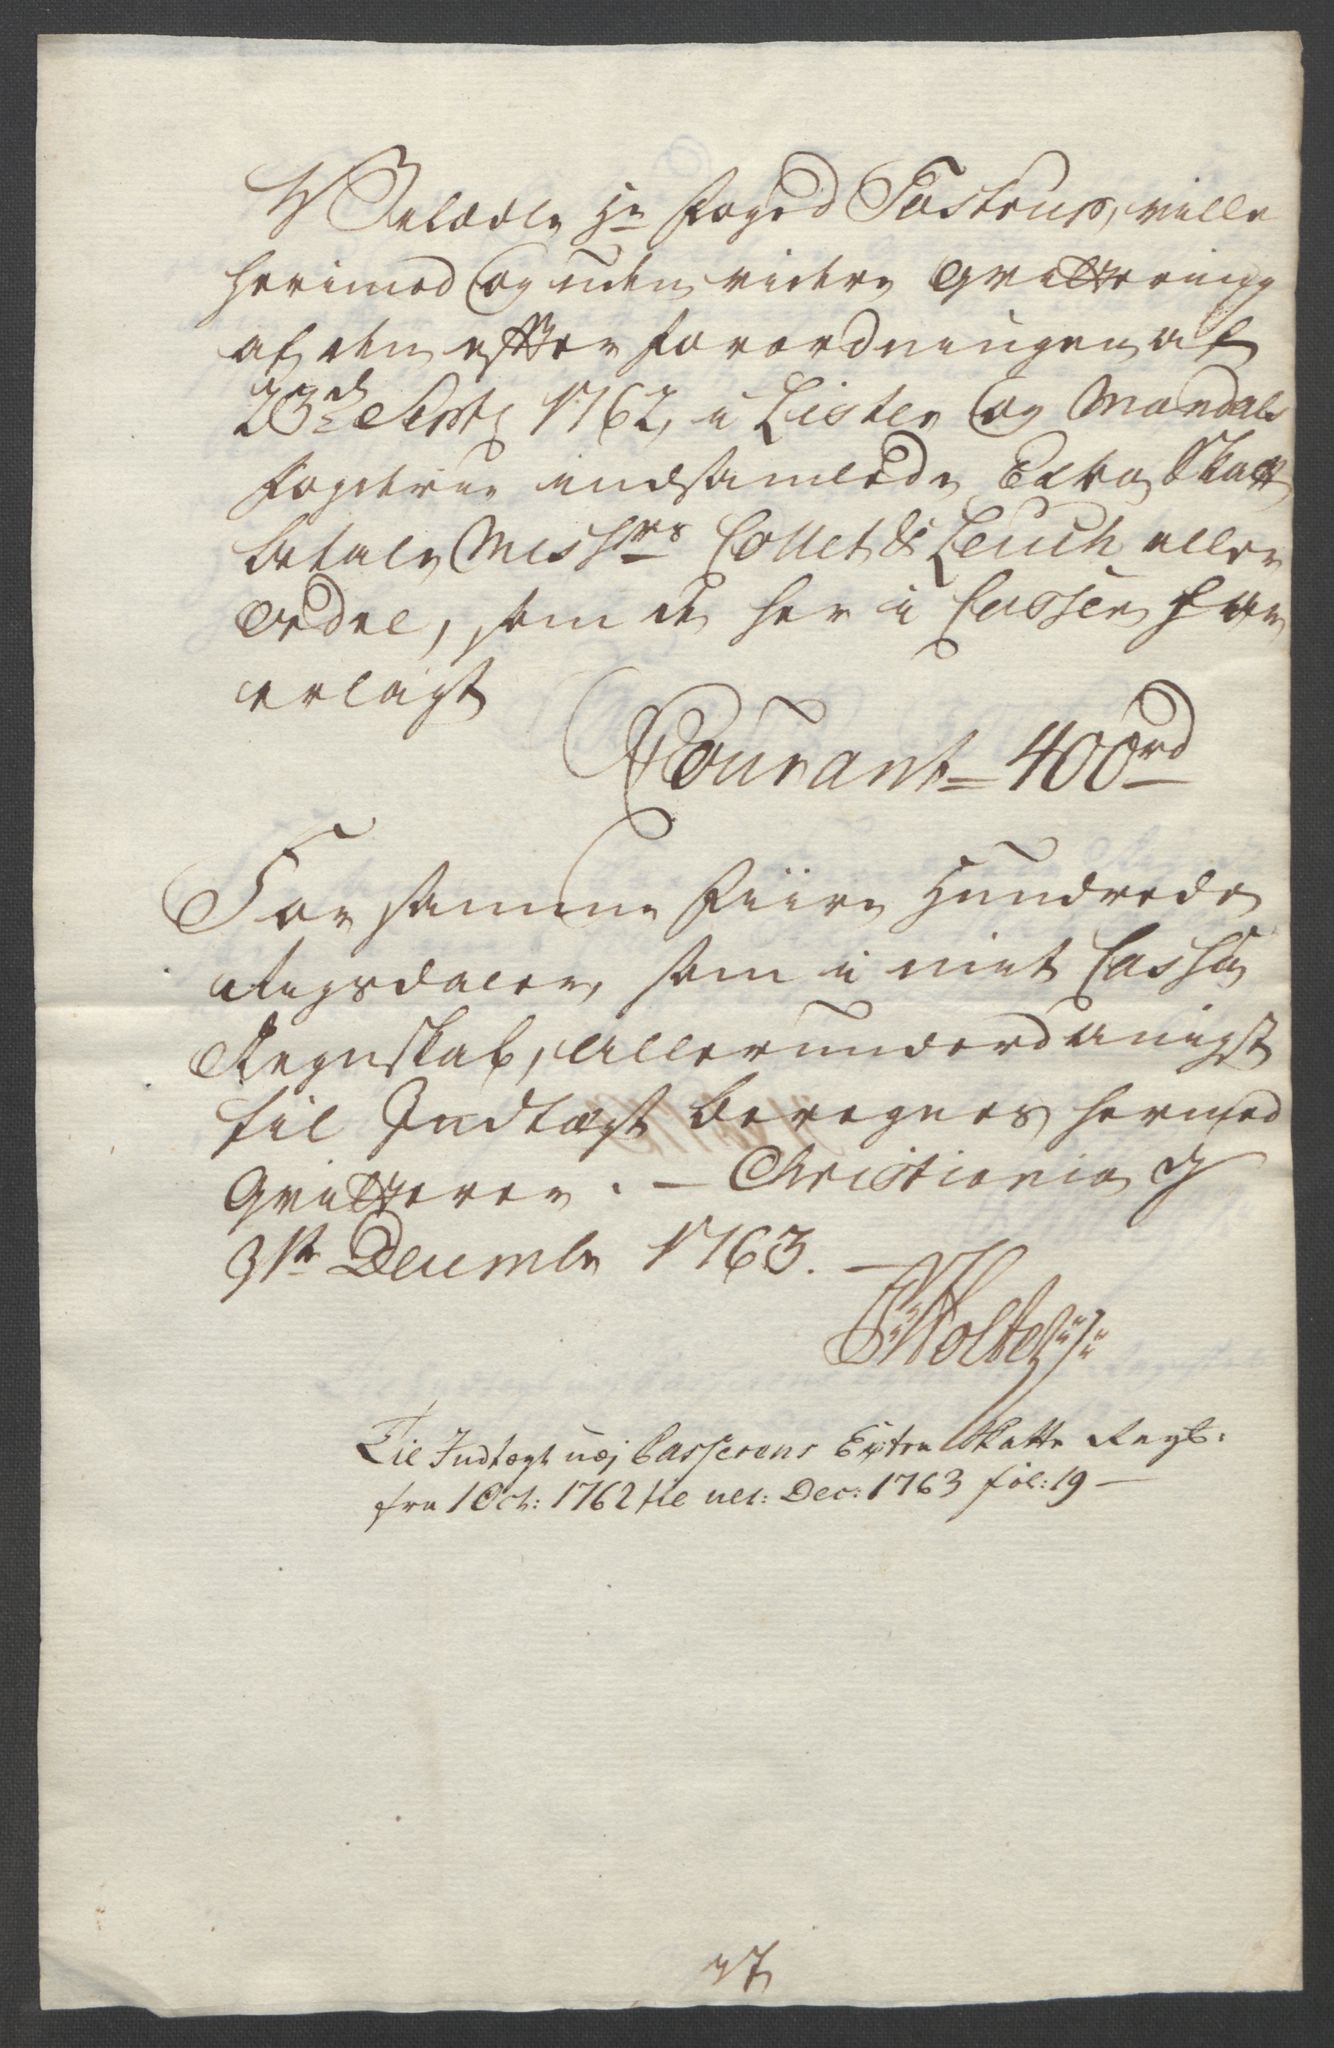 Velædle Hr Foged Tostrup, ville
herimod og uden videre Qvittering
af den efter Forordningen af
23de Septr 1762, i Lister og Mandals
Fogderie indsamlede Extra Skatt
betale Messrs Collet & Leuch eller
Ordre, som de her i Cassen har
erlagt
Courant = 400rd
For samme Fiire Hundrede
Rigsdaler, som i mit Cassa
Regnskab, Allerunderdanigst
til Indtægt beregnes hermed
Qvitterer. - Christiania d
31te Decembr 1763. -
PHolte
Til Indtægt udj Casserens Extra Skatte Regsk:
fra 1 Oct: 1762 til ult: Dec: 1763 fol: 19 -